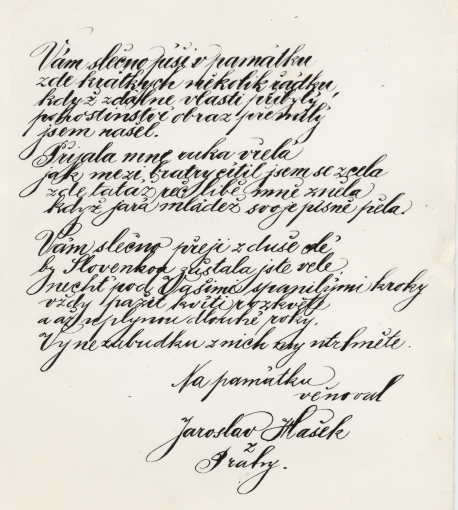 Vám slečno píši v památku
zde krátkých několik řádků,
když z dálné vlasti přibylý,
pohostinství obraz přemilý
jsem našel.
Přijala mne ruka vřelá
jak mezi bratry cítil jsem se zcela
zde tatáž řeč libě mně zněla
když jará mládež svoje písně pěla.
Vám slečno přeji z duše celé
by Slovenkou zůstala jste vřele
nechť pod Vašimi spanilými kroky
vždy pažit kvítí rozkvétá
a až uplynou dlouhé roky.
Vy nezabudku z nich utrhněte.
Na památku
věnoval
Jaroslav Hašek
z
Prahy.